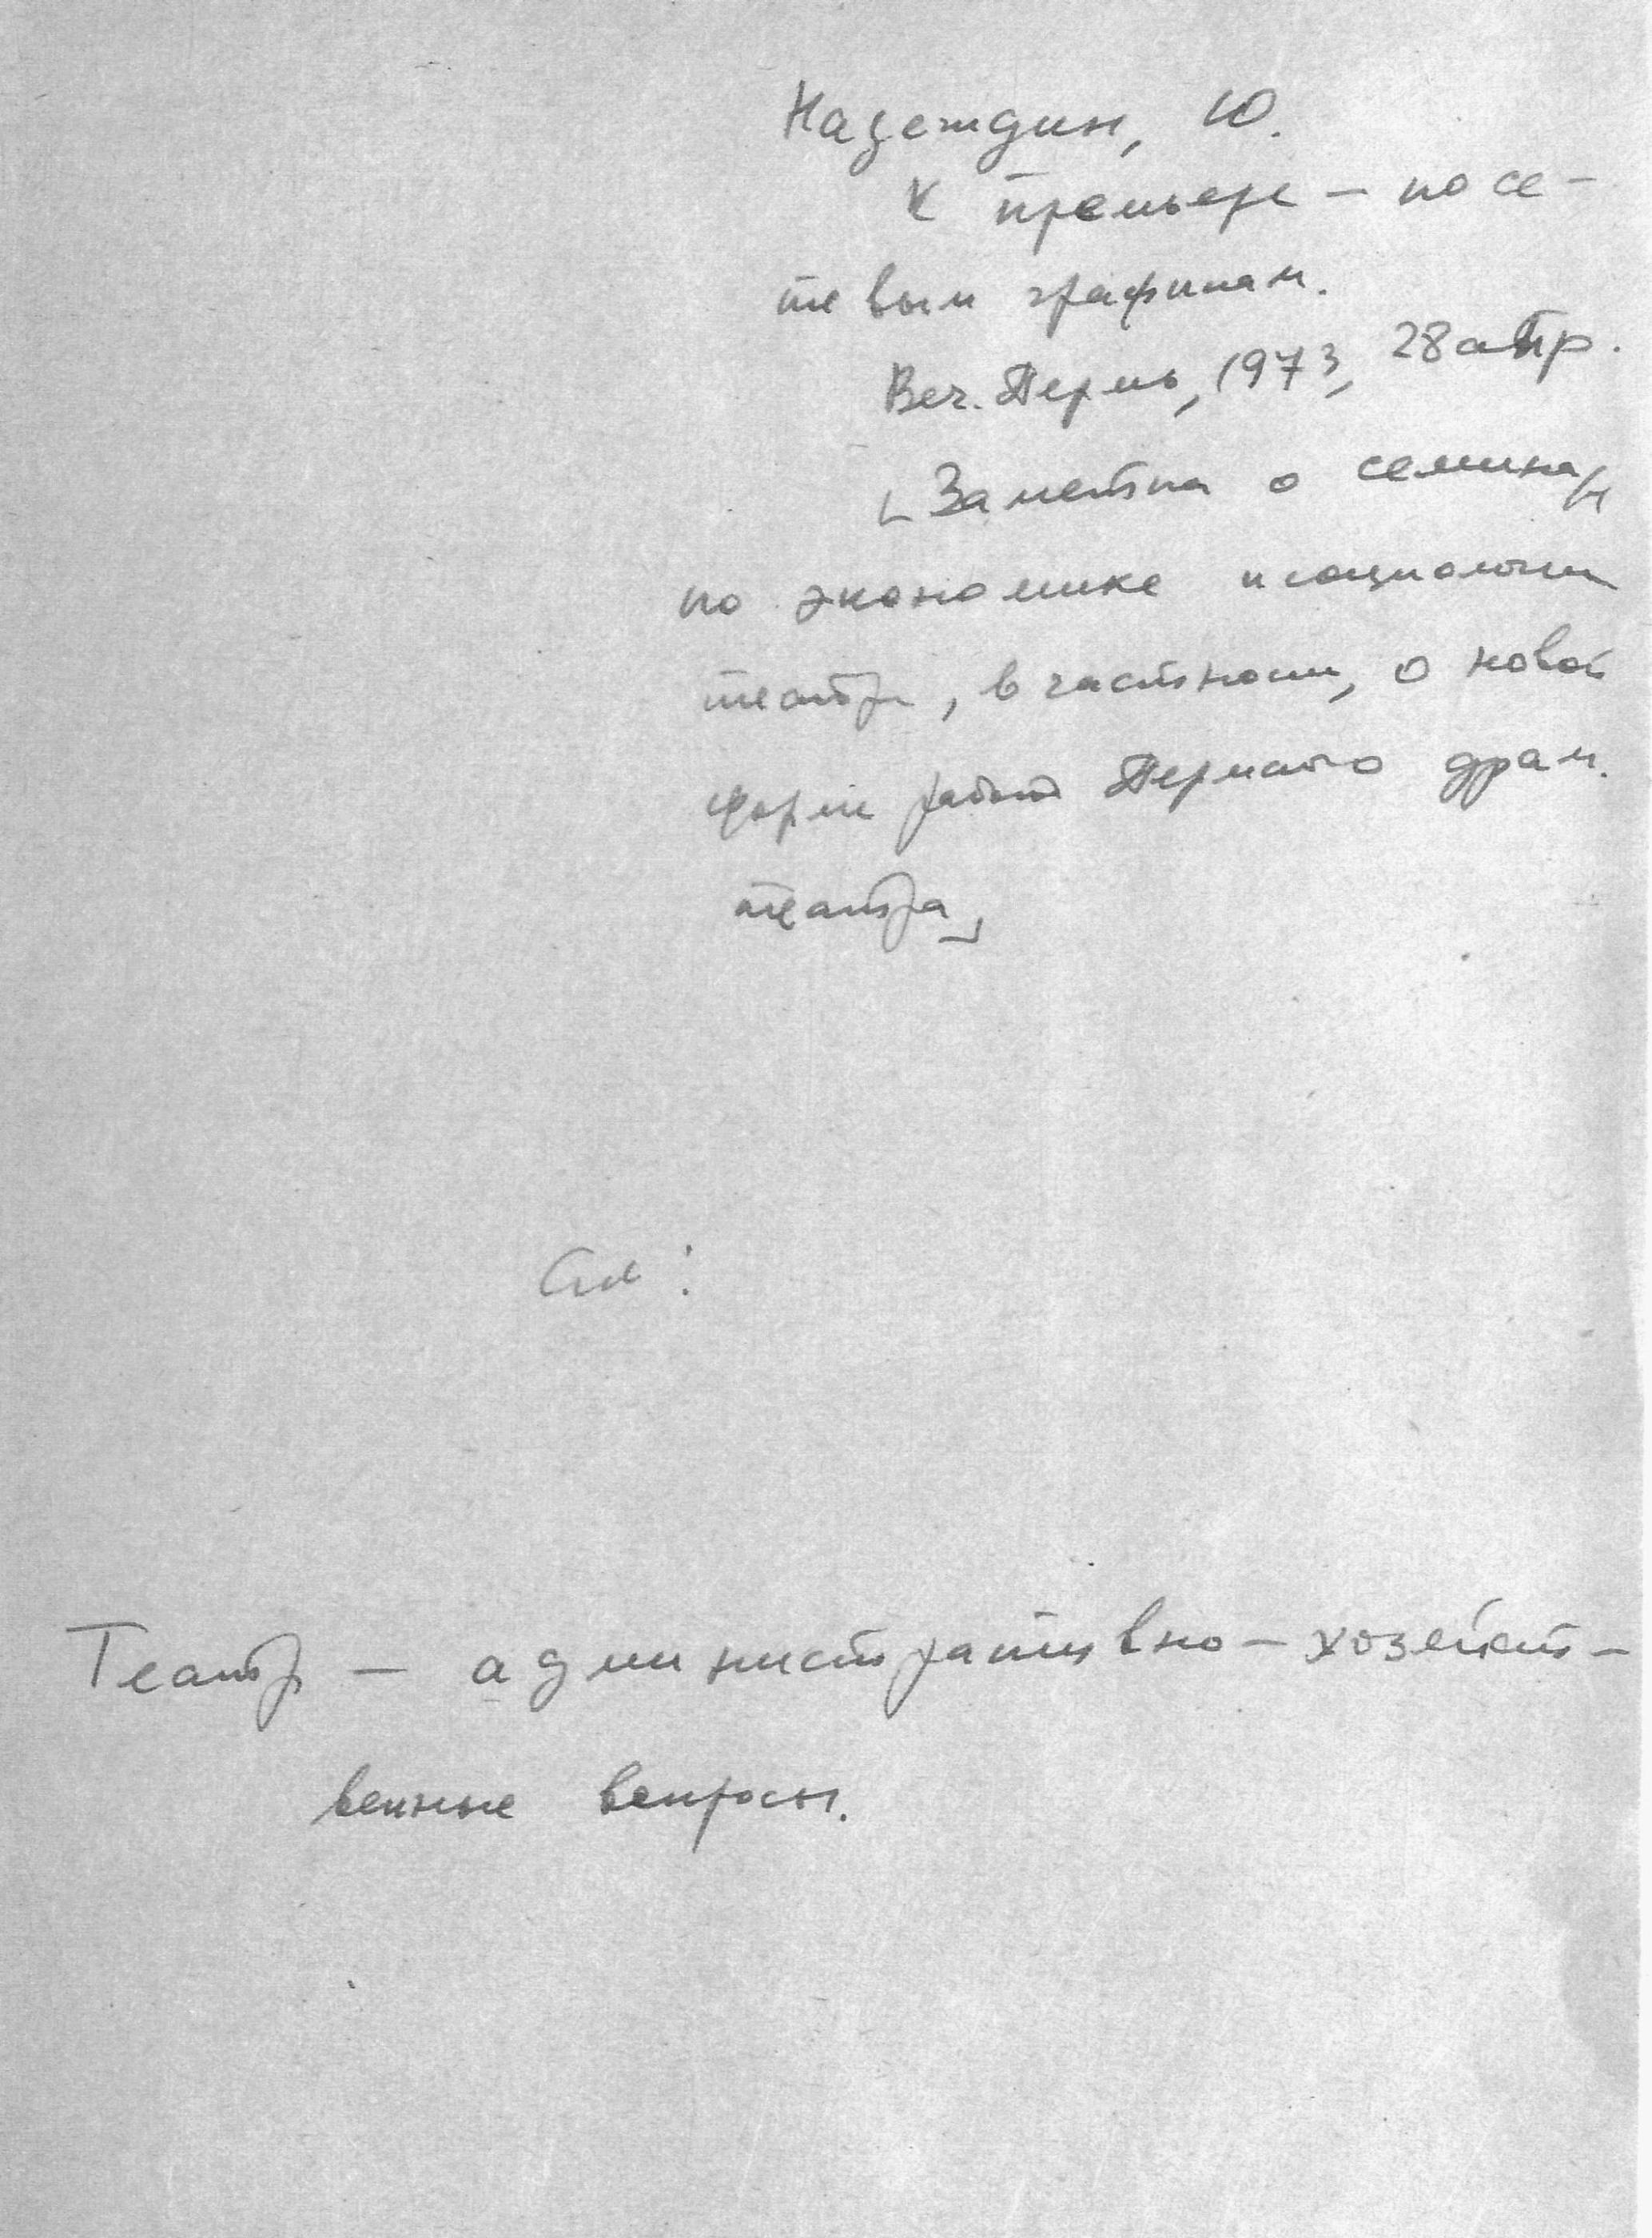 Надеждин, Ю.
К премьере – по се-
тевым графикам.
Веч. Пермь, 1973, 28 апр.
[Заметка о семинаре
по экономике и социологии
театра, в частности, о новой
форме работы Пермского драм.
театра]
См:
Театр – административно-хозяйст-
венные вопросы.